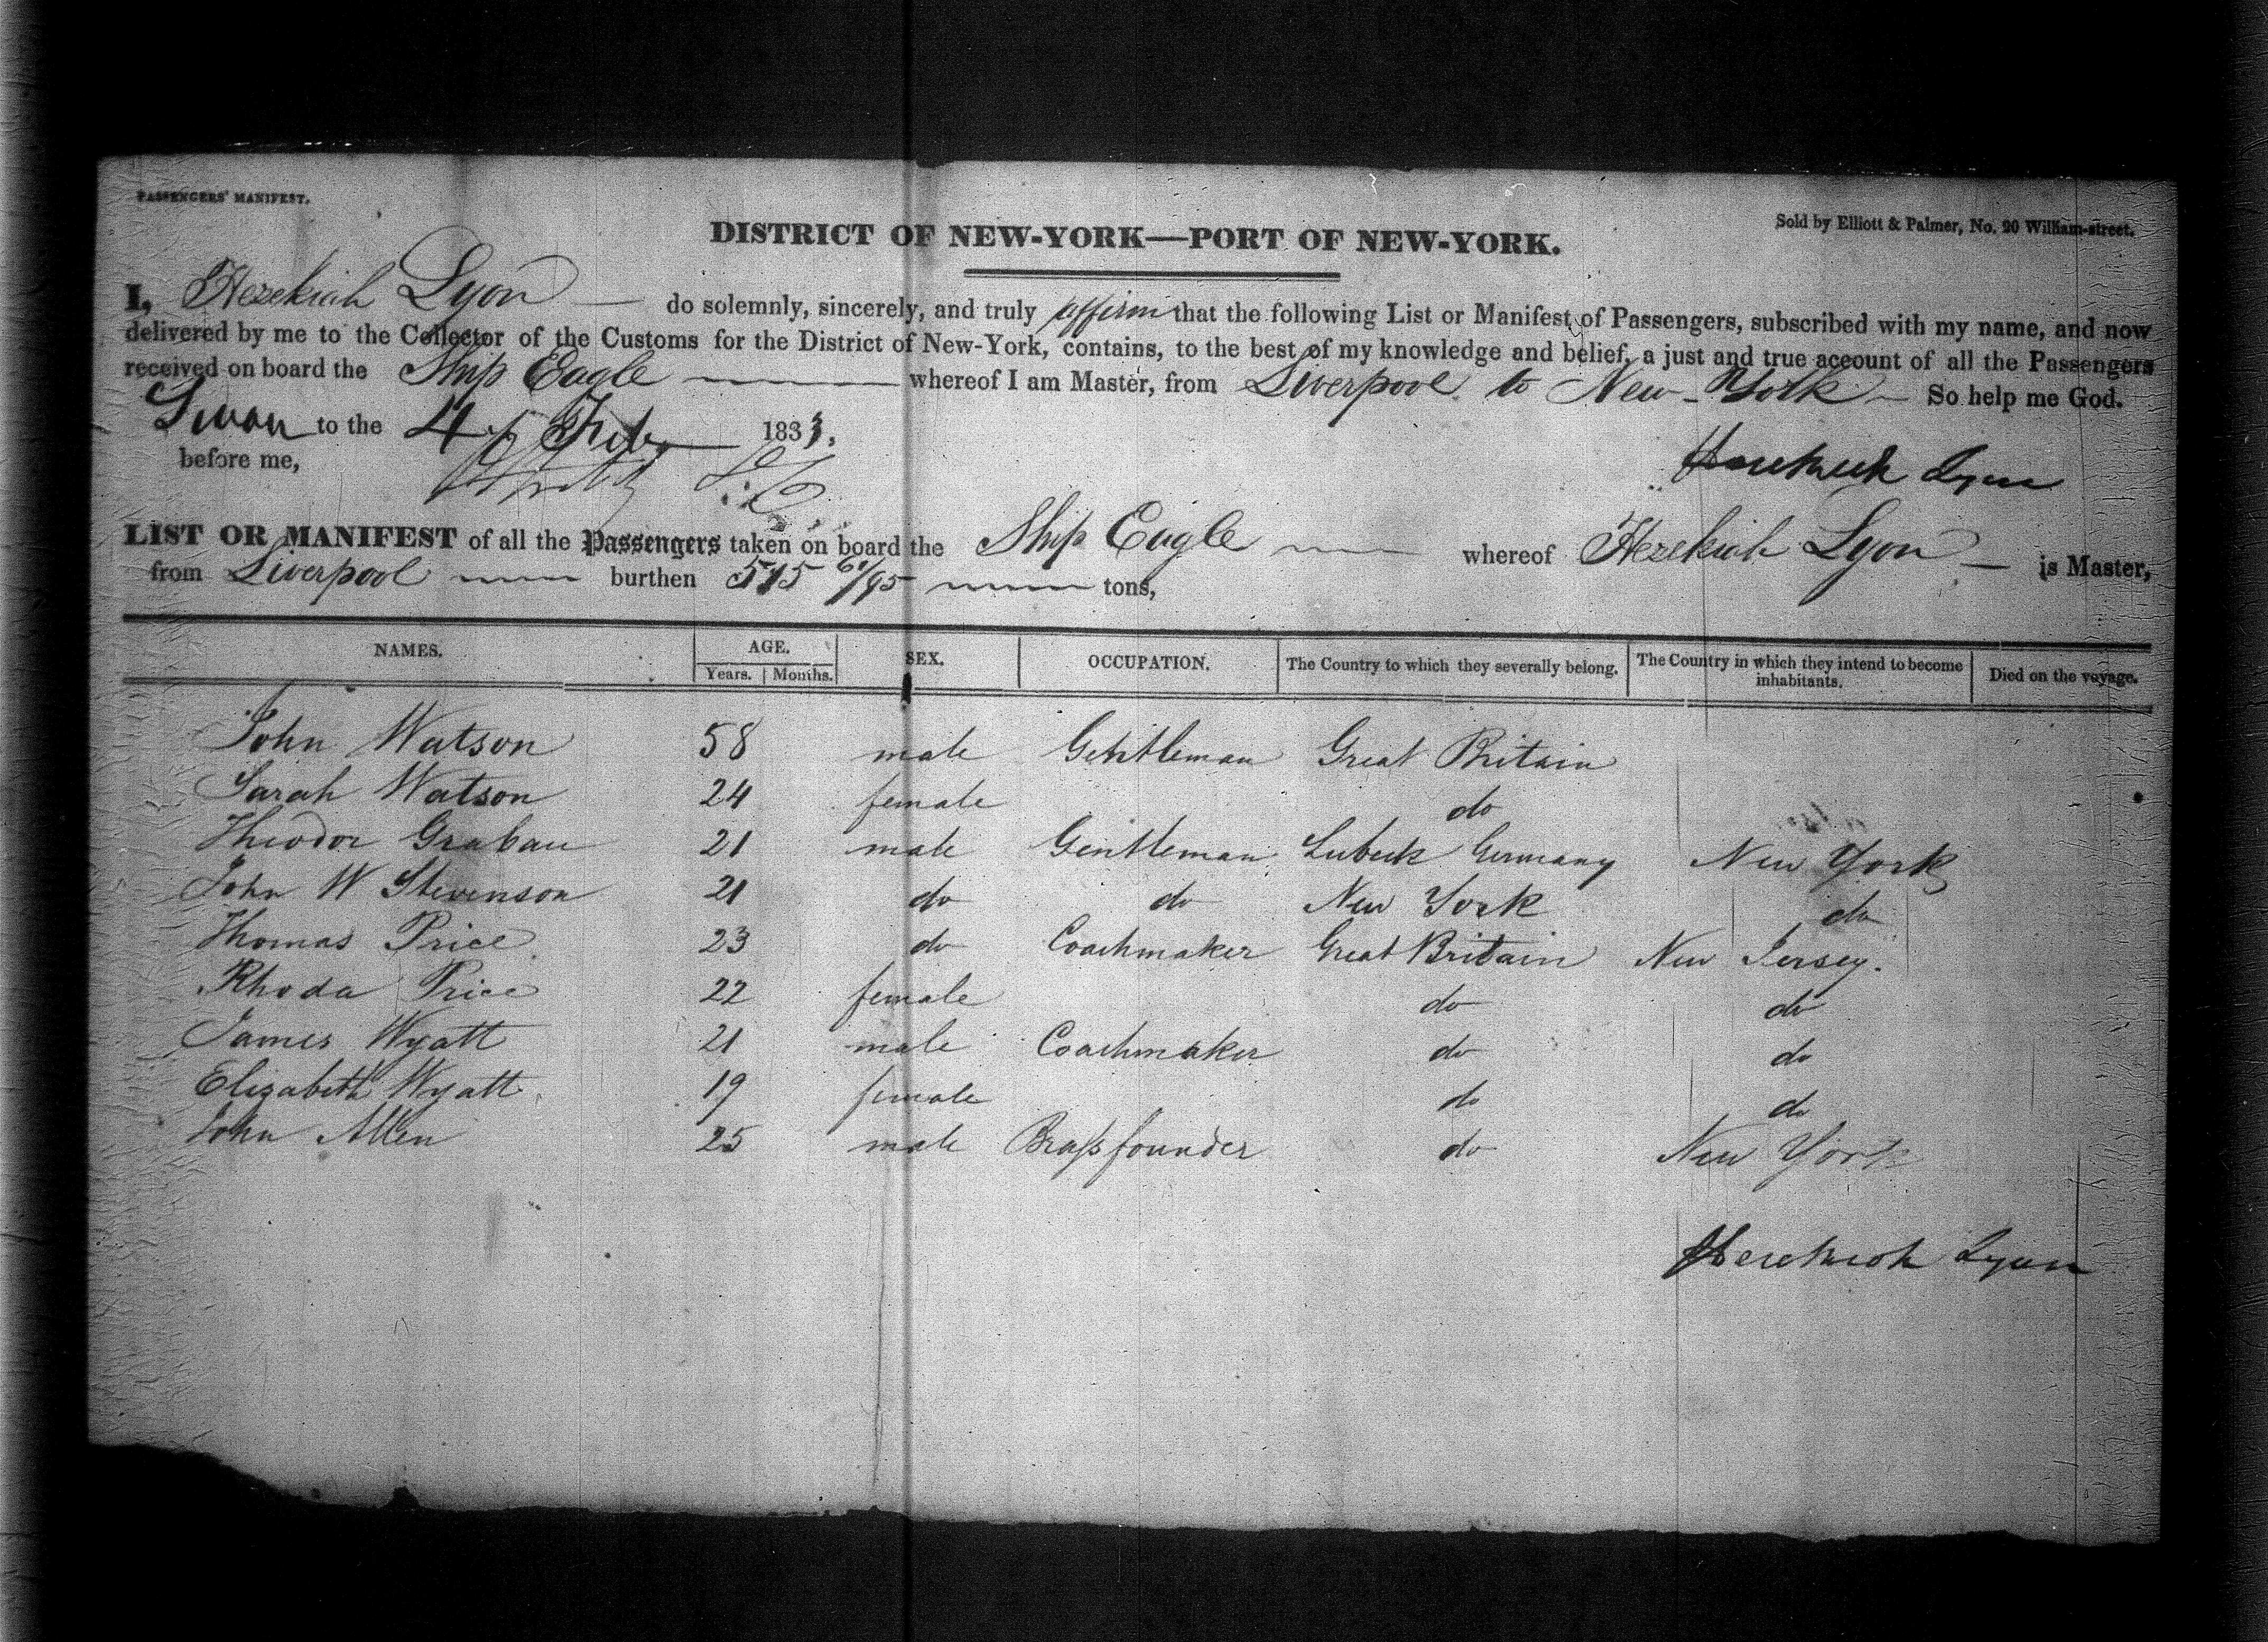 PASSENGERS' MANIFEST.
Sold by Elliott & Palmer, No. 20 William-street.
DISTRICT OF NEW-YORK—PORT OF NEW-YORK.
I, Hezekiah Lyon do solemnly, sincerely, and truly affirm that the following List or Manifest of Passengers, subscribed with my name, and now
delivered by me to the Collector of the Customs for the District of New-York, contains, to the best of my knowledge and belief, a just and true account of all the Passengers
received on board the Ship Eagle whereof I am Master, from Liverpool to New-York So help me God.
Sworn to the 4 of Feby 1833.
before me,
Hezekiah Lyon
LIST OR MANIFEST of all the Passengers taken on board the Ship Eagle whereof Hezekiah Lyon is Master,
from Liverpool burthen tons,
NAMES. AGE. SEX. OCCUPATION. The Country to which they severally belong. The Country in which they intend to become inhabitants. Died on the voyage.
Years. Months.
John Watson 58 male Gentleman Great Britain
Sarah Watson 24 female do
Theodor Grabau 21 male Gentleman Lubeck Germany New York
John W Stevenson 21 do do New York do
Thomas Price 23 do Coachmaker Great Britain New Jersey.
Rhoda Price 22 female do do
James Wyatt 21 male Coachmaker do do
Elizabeth Wyatt 19 female do do
John Allen 25 male Brassfounder do New York
Hezekiah Lyon